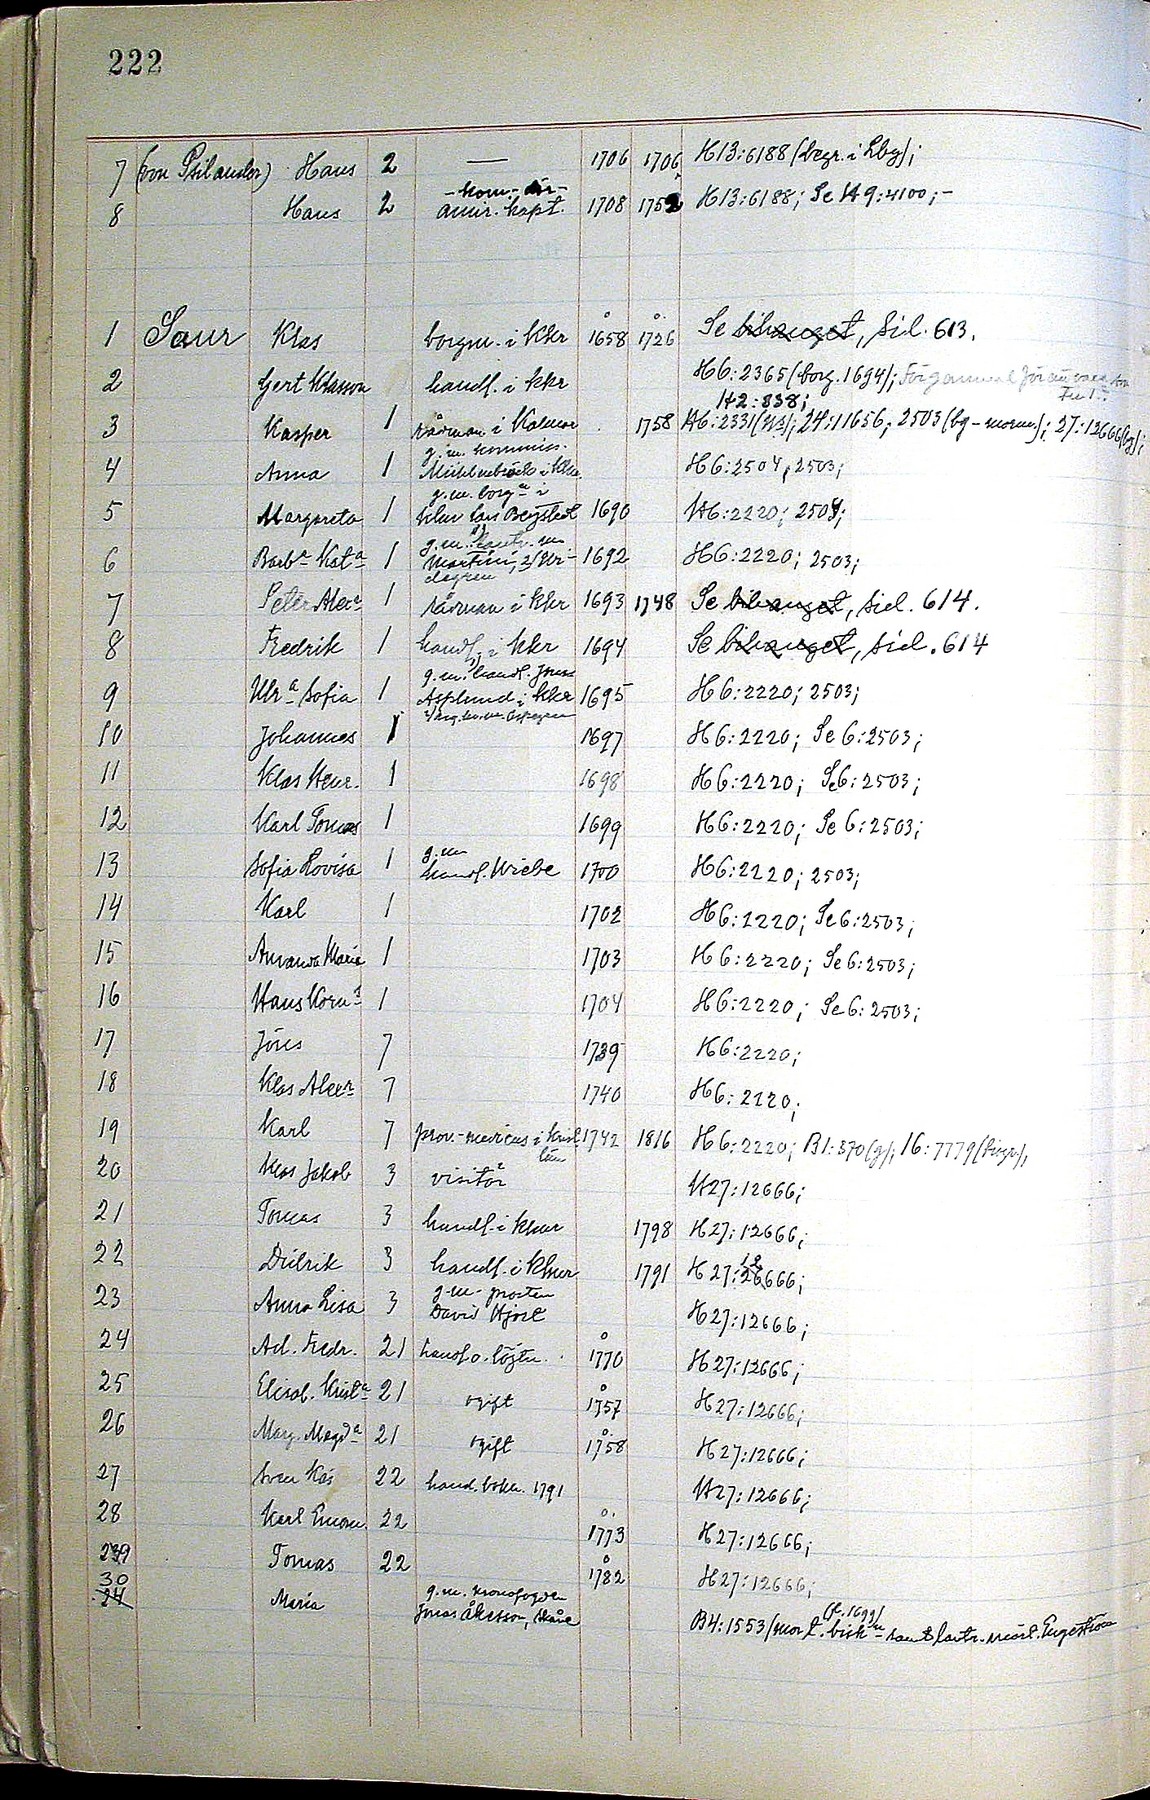 222
7 (von Psilander) Hans 2 — 1706 1706 H13:6188 (begr. i Kbg);
8 Hans 2 amir. kapt. 1708 1752 H13:6188; Se H9:4100;-
1 Saur Klas borgm. i Kkr 1658 1726 Se bihanget, sid. 613.
2 Gert Klasson handl. i Kkr H6:2365 (borg. 1694);
H2:838;
3 Kasper 1 rådman i Kalmar 1758 H6:2331 24:11656; 2503 27:12666
g.m. kommiss.
4 Anna 1 i Kkr. H6:2504, 2503;
g.m. borg i
5 Margareta 1 Klmr Lars Bergstedt 1690 H6:2220; 2503;
g.m.
6 Barba Kata 1 Martini, 1692 H6:2220; 2503;
7 Peter Alexr 1 rådman i Kkr 1693 1748 Se bihanget, sid. 614.
8 Fredrik 1 handl. i Kkr 1694 Se bihanget, sid. 614
g.m. handl. Jonas
9 Ulra Sofia 1 Asplund i Kkr 1695 H6:2220; 2503;
10 Johannes 1 1697 H6:2220; Se 6:2503;
11 Klas Henr. 1 1698 H6:2220; Se 6:2503;
12 Karl Tomas 1 1699 H6:2220; Se 6:2503;
g.m
13 Sofia Lovisa 1 handl. Wiebe 1700 H6:2220; 2503;
14 Karl 1 1702 H6:2220; Se 6:2503;
15 Maria 1 1703 H6:2220; Se 6:2503;
16 Hans Korns 1 1704 H6:2220; Se 6:2503;
17 Jöns 7 1739 H6:2220;
18 Klas Alexr 7 1740 H6:2220;
19 Karl 7 prov.-medicus i Krist 1742 1816 H6:2220; B1:370(g); 16:7779
län
20 Klas Jakob 3 visitör H27:12666;
21 Tomas 3 handl. i Klmr 1798 H27:12666;
22 Didrik 3 handl. i Klmr 1791 H27:12666;
g.m. prosten
23 Anna Lisa 3 David Hjort H27:12666;
24 Ad. Fredr. 21 handl. o. löjtn. 1770 H27:12666;
25 Elisab. Krista 21 ogift 1757 H27:12666;
26 Marg. Magda 21 ogift 1758 H27:12666;
27 Sven Klas 22 hand. bokh. 1791 H27:12666;
28 Karl Eman. 22 1773 H27:12666;
29 Tomas 22 1782 H27:12666;
30 Maria g.m. kronofogden
24 Jonas Åkesson, Skåne B4:1553 (f. 1699)